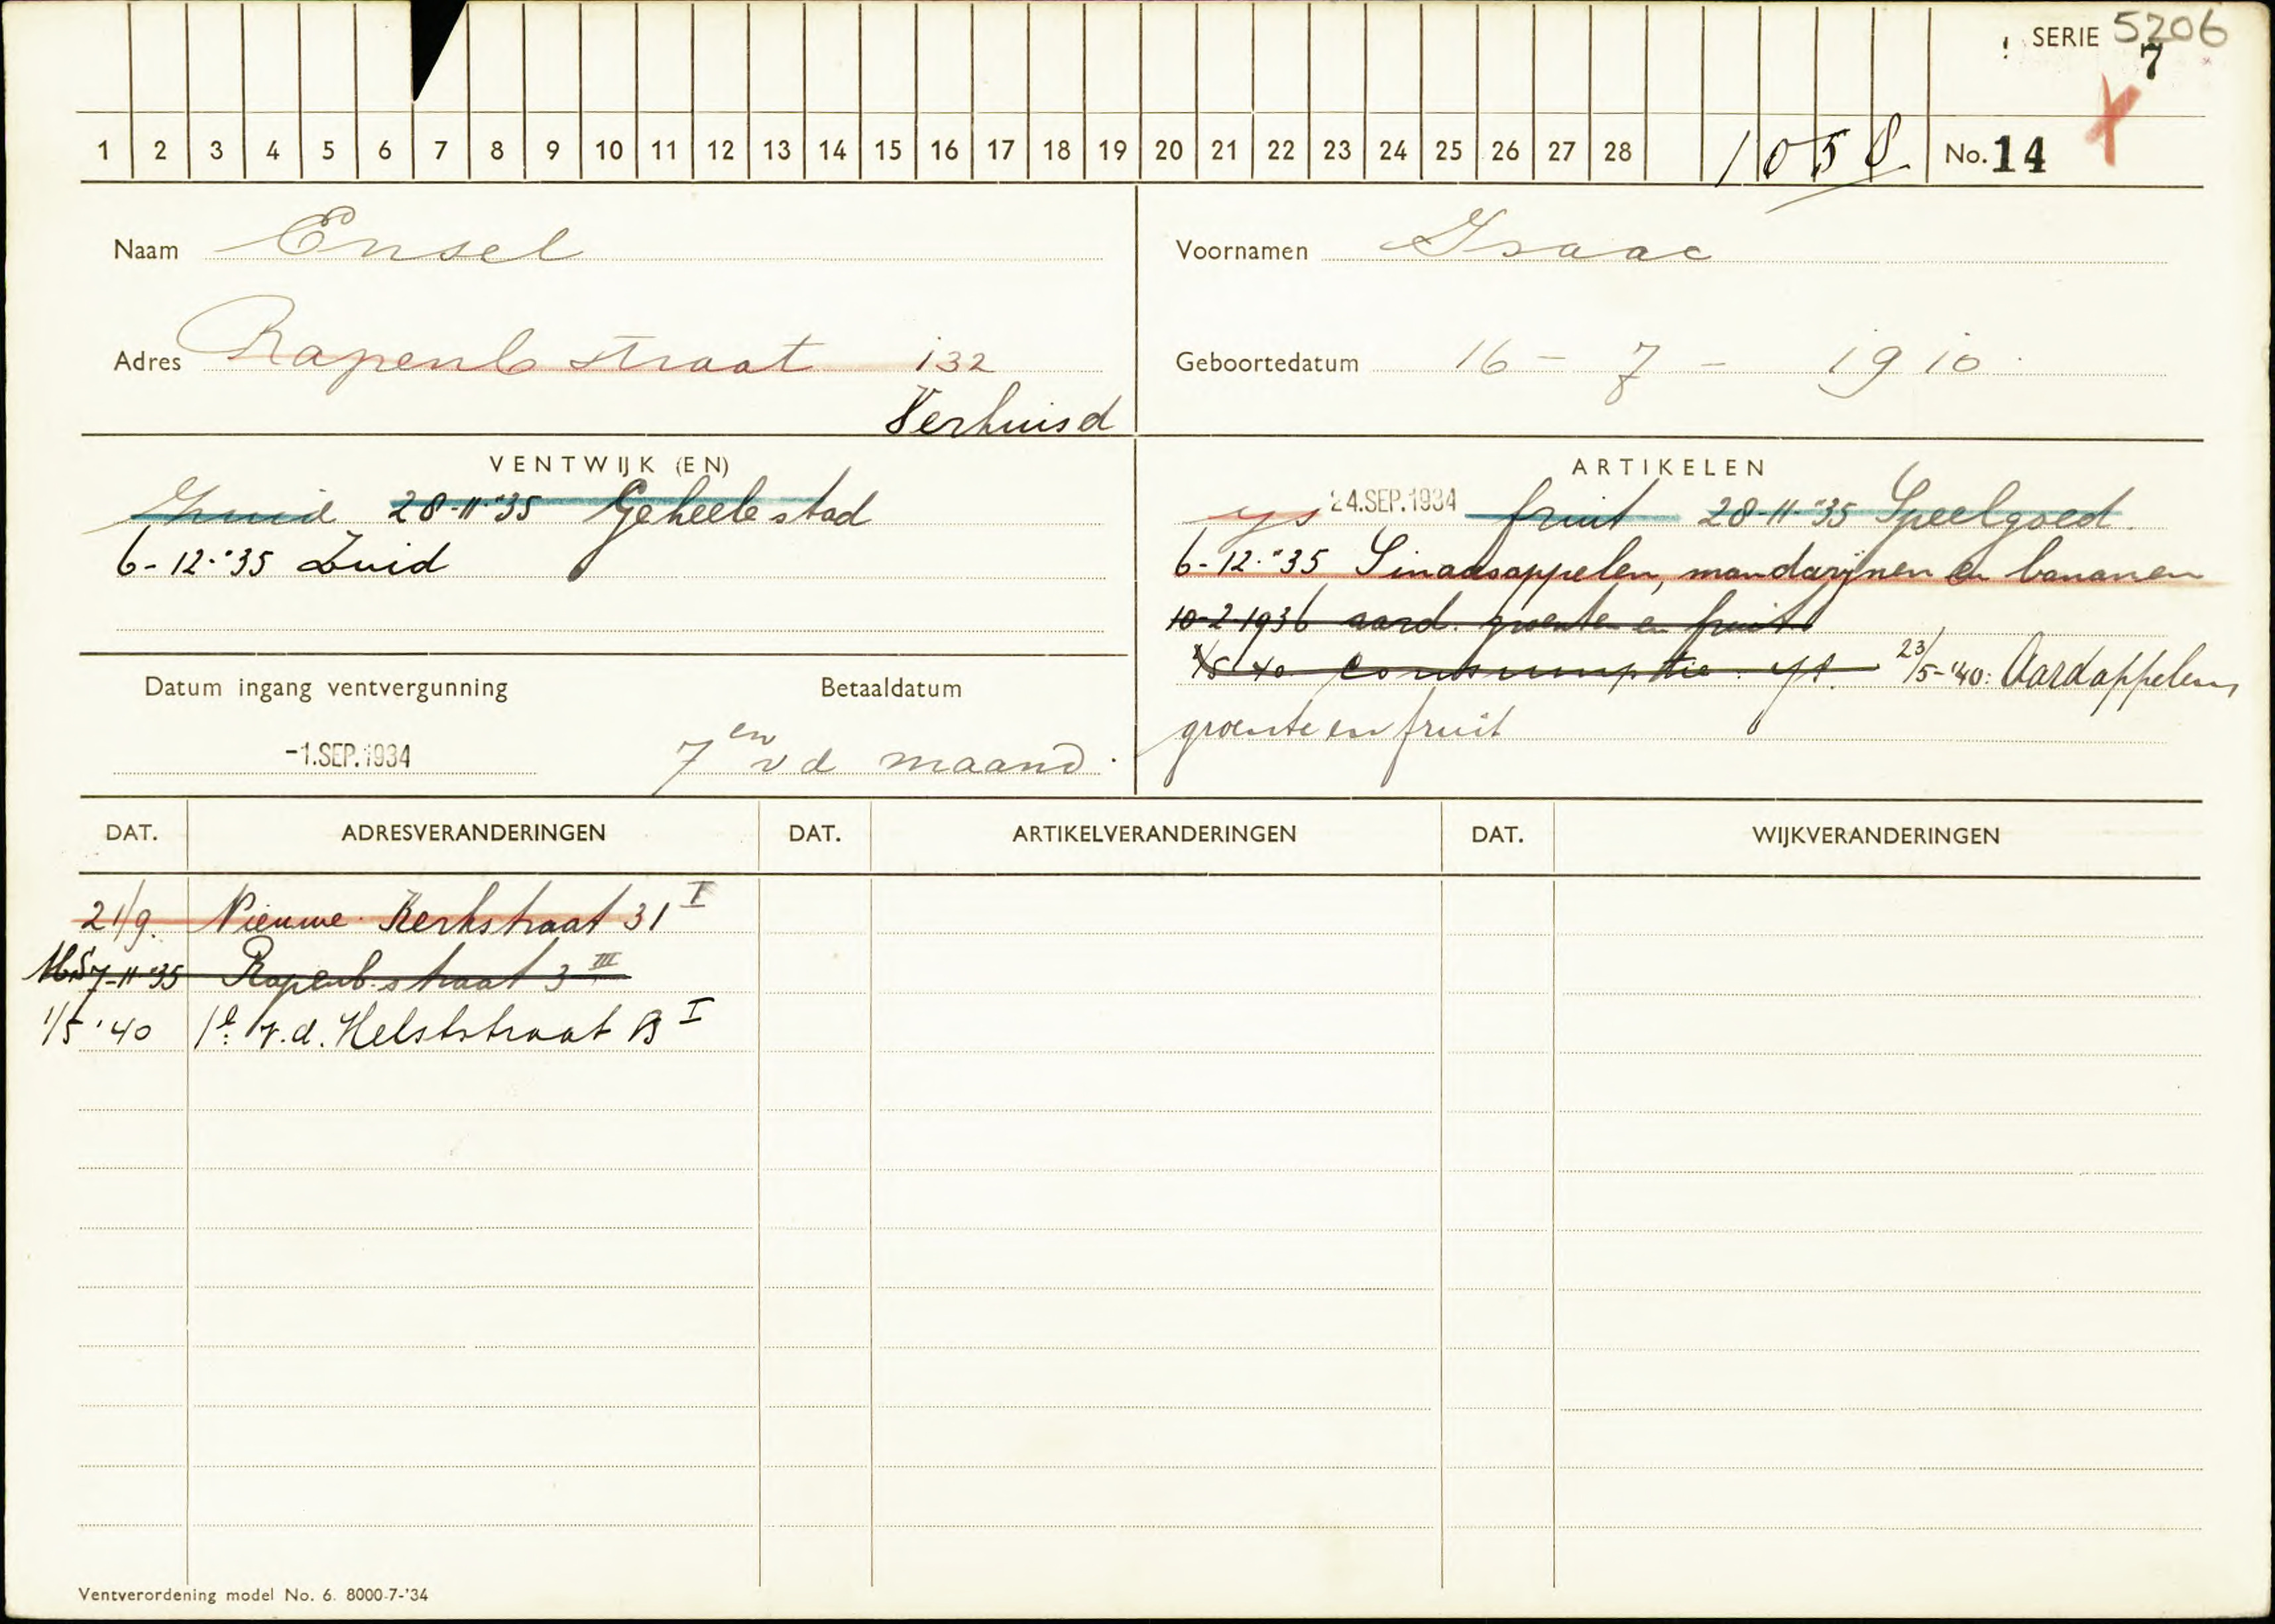 SERIE 5206
7
1 2 3 4 5 6 7 8 9 10 11 12 13 14 15 16 17 18 19 20 21 22 23 24 25 26 27 28 1058 No. 14
Naam Ensel
Voornamen Isaac
Adres Rapenb straat 132
Geboortedatum 16 - 7 - 1910
Verhuisd
VENTWIJK (EN)
Zuid 28-11-'35 Geheele stad
6-12-'35 Zuid
ARTIKELEN
ys 24.SEP.1934 fruit 28-11-'35 Speelgoed.
6-12-'35 Sinaasappelen, mandarijnen en bananen
10-2-1936 aard. groenten en fruit
1/5 '40 Consumptie ys. 23/5-'40: Aardappelen,
groente en fruit
Datum ingang ventvergunning Betaaldatum
-1.SEP.1934 7en v d maand.
DAT. ADRESVERANDERINGEN DAT. ARTIKELVERANDERINGEN DAT. WIJKVERANDERINGEN
21/9. Nieuwe Kerkstraat 31 I
7-11-'35 Rapenb.straat 3 III
1/5 '40 1e v.d. Helststraat I
Ventverordening model No. 6. 8000-7-'34